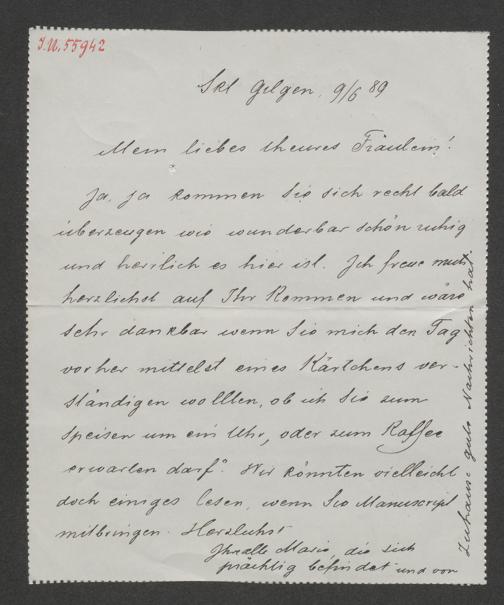 I.N. 55942
Skt Gilgen, 9/6 89
Mein liebes theures Fräulein!
Ja, ja kommen Sie sich recht bald
überzeugen wie wunderbar schön ruhig
und herrlich es hier ist. Ich freue mich
herzlichst auf Ihr Kommen und wäre
sehr dankbar wenn Sie mich den Tag
vorher mittelst eines Kärtchens ver-
ständigen wolllen, ob ich Sie zum
speisen um ein Uhr, oder zum Kaffee
erwarten darf. Wir könnten vielleicht
doch einiges lesen, wenn Sie Manuscript
mitbringen. Herzlichst
Ihre alte Marie, die sich
prächtig befindet und von
Zuhause gute Nachrichten hat.